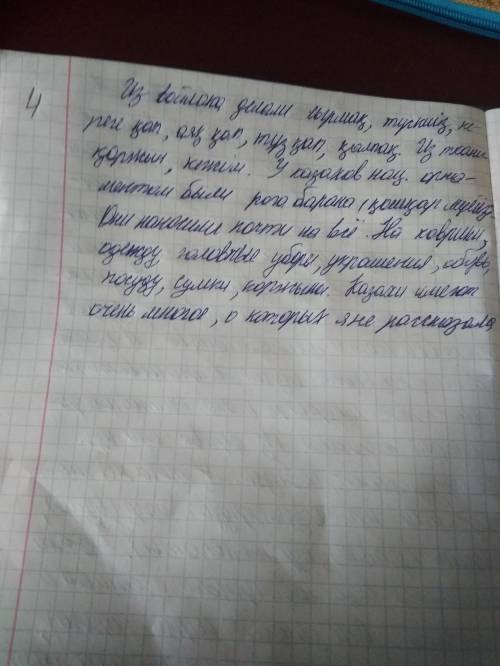 4
Из войлока делали сырмақ, тускииз, ке-
реге қап, аяқ қап, туз қап, қалпақ. Из ткани
қоржын, кежім. У казахов нац. орна-
ментом были рога барана (қошқар мүйіз)
Они наносили почти на всё. На коврики,
одежду, головные уборы, украшения, обувь,
посуду, сумки, коржыны. Казахи имеют
очень многое, о которых я не рассказала